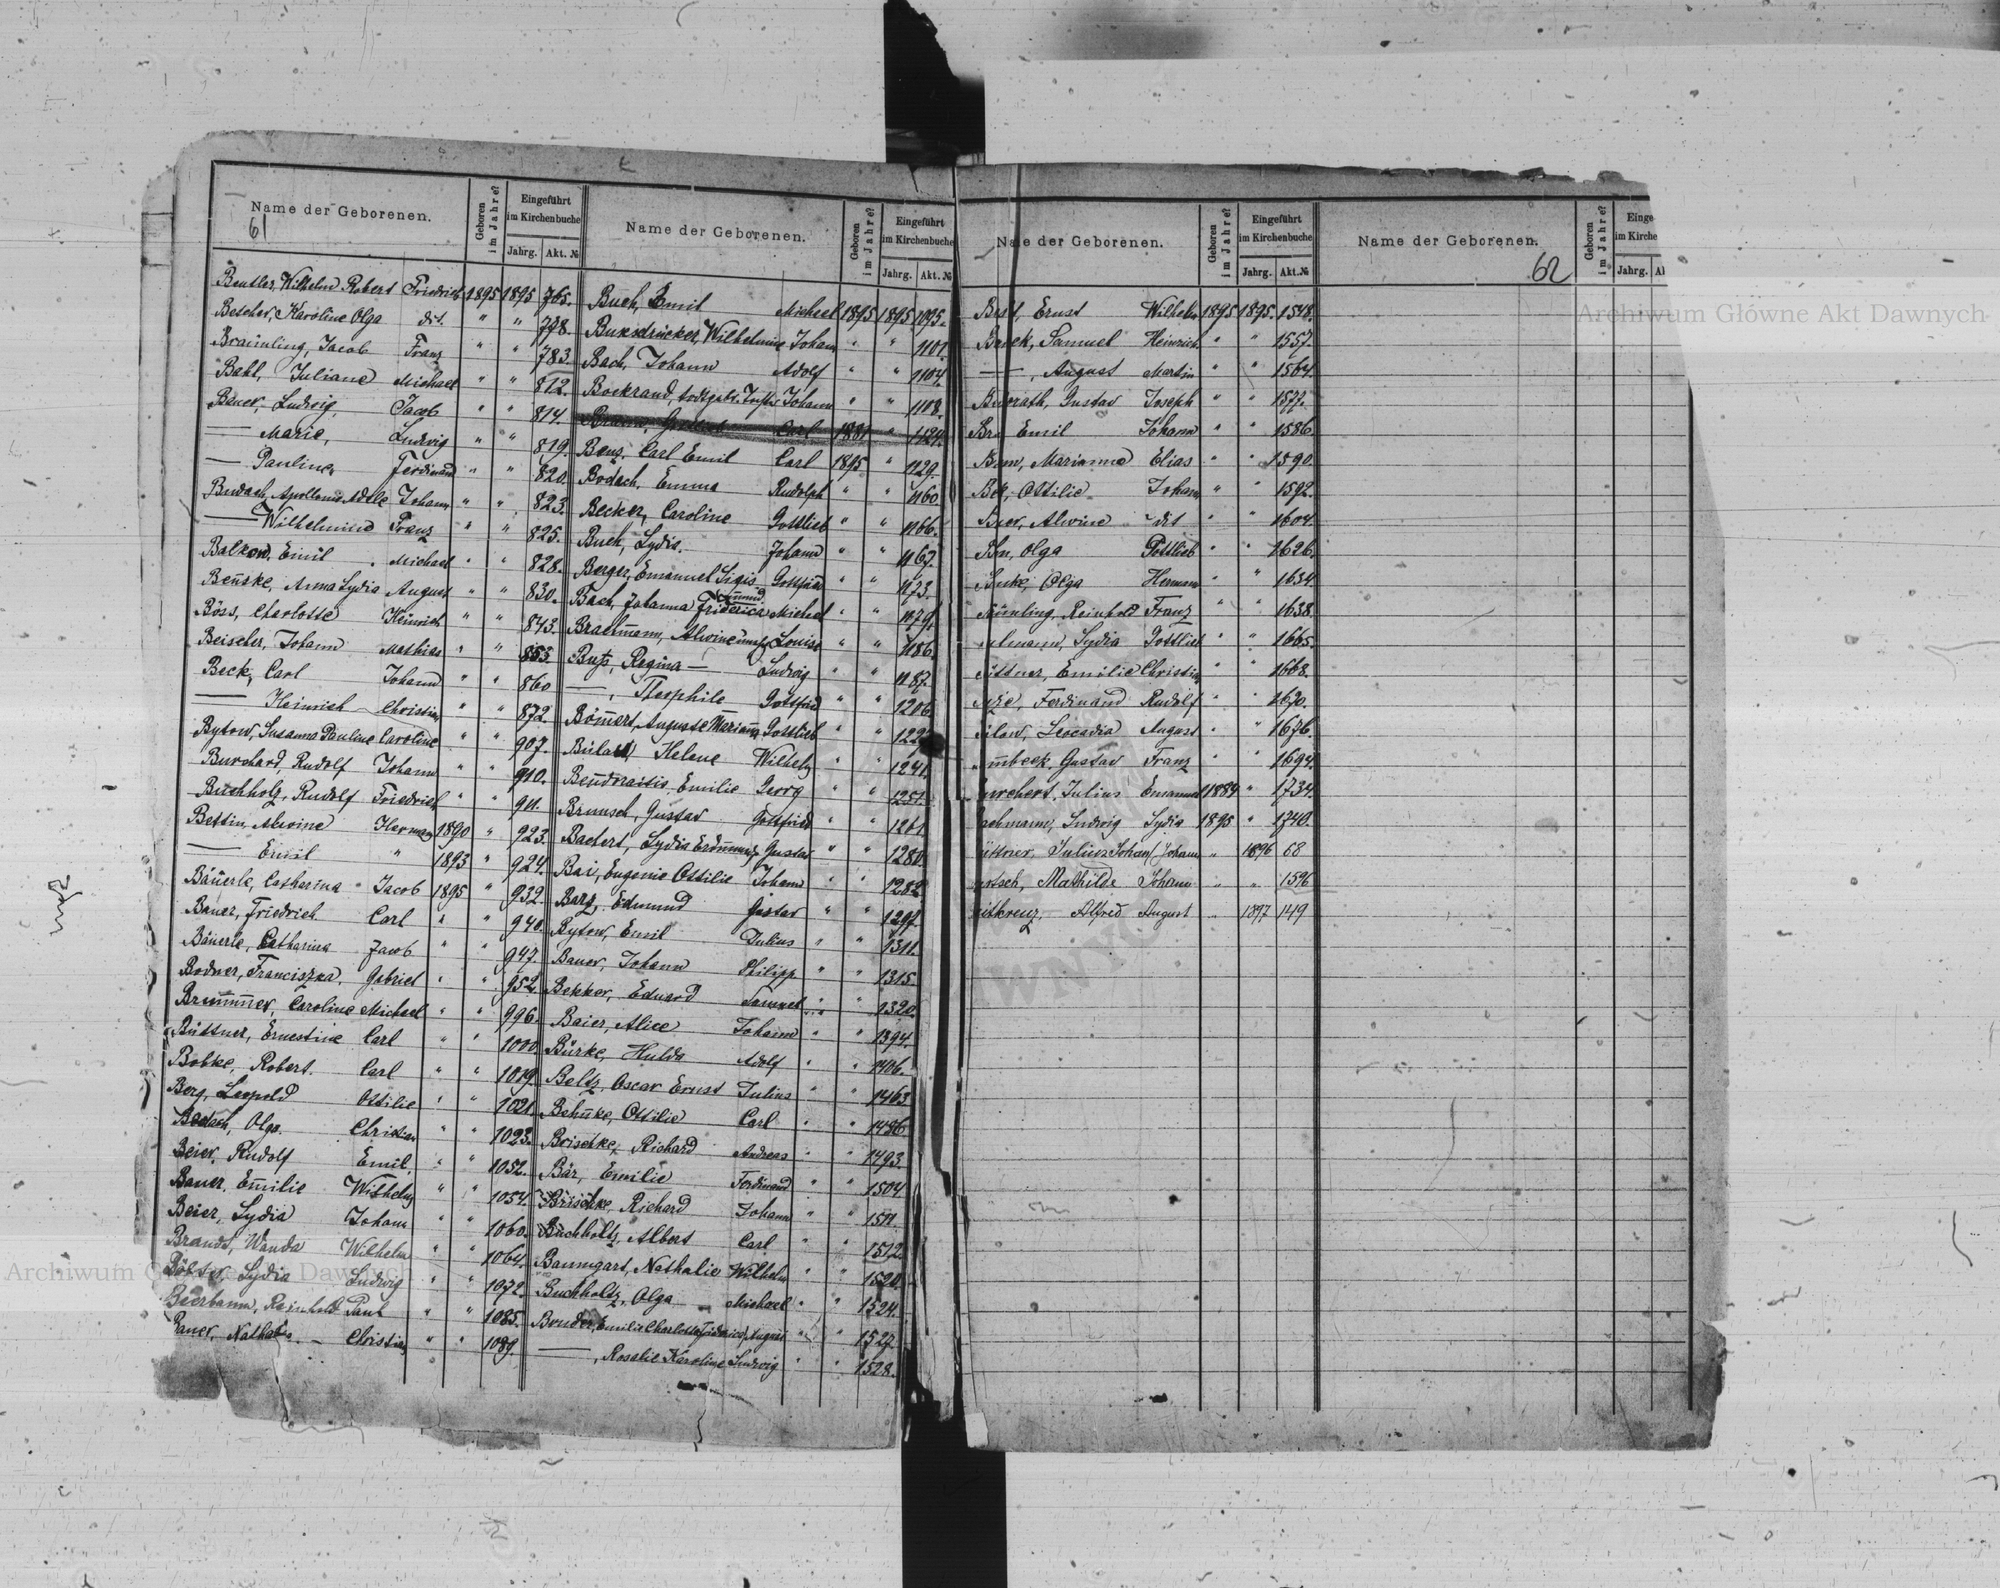 Name der Geborenen.
61
Geboren im Jahre?
Eingeführt im Kirchenbuche
Jahrg. Akt. №
Beutler, Wilhelm Robert Friedrich 1895 1895 765.
Betcher, Karoline Olga dit. " " 778.
Bräunling, Jacob Franz " " 783.
Bahl, Juliane Michael " " 812.
Bauer, Ludwig, Jacob " " 814.
— Marie, Ludwig " " 819.
— Pauline, Ferdinand " " 820.
Budach, Apollonia Adele Johann " " 823.
— Wilhelmine Franz " " 825.
Balkow, Emil Michael " " 828.
Benske, Anna Lydia August " " 830.
Böss, Charlotte Heinrich " " 843.
Beischer, Johann Mathias " " 853.
Beck, Carl Johann " " 860
— Heinrich Christian " " 872.
Bytow, Susanna Pauline Caroline " " 907.
Burchard, Rudolf Johann " " 910.
Buchholz, Rudolf Friedrich " " 911.
Bettin, Alwine Herman 1890 " 923.
— Emil " 1893 " 924.
Bäuerle, Catharina Jacob 1895 " 932.
Bauer, Friedrich Carl " " 940.
Bäuerle, Catharina Jacob " " 947.
Bodner, Franciszka, Gabriel " " 952.
Brummer, Caroline Michael " " 996.
Büttner, Ernestine Carl " " 1000.
Bobke, Robert. Carl " " 1019.
Berg, Leopold Ottilie " " 1021.
Badach, Olga. Christian " " 1023.
Beier, Rudolf Emil, " " 1052.
Bauer, Emilie Wilhelm " " 1054.
Beier, Lydia Johann " " 1060.
Brandt, Wanda Wilhelm " " 1064.
Lydia Ludwig " " 1072.
Bierbaum, Reinhold Paul " " 1085.
Bauer, Christian " " 1089.
Name der Geborenen.
Geboren im Jahre?
Eingeführt im Kirchenbuche
Jahrg. Akt. №
Buch, Emil Michael 1895 1895 1095.
Buksdrücker, Wilhelmine Johann " " 1101.
Bach, Johann Adolf " " 1104.
Bockrand, Johann " " 1108.
Carl 1881 " 1124.
Beus, Carl Emil Carl 1895 " 1129.
Bodach, Emma Rudolph " " 1160
Becker, Caroline Gottlieb " " 1166.
Buch, Lydia. Johann " " 1167.
Berger, Emanuel Sigismund Gottfried " " 1173.
Bach, Johanna Friderica Michael " " 1179.
Brahmann, Alwine Louise " " 1186
Buss, Regina — Ludwig " " 1187.
—, Theophile Gottfried " " 1206
Bömert, Auguste Marianna Gottlieb " "
Helene Wilhelm " " 1241.
Bendraitis, Emilie Georg " " 1251.
Brunsch, Gustav Gottfried " " 1261
Bachert, Lydia Erdmund Gustav " " 1280.
Bai, Eugenie Ottilie Johann " " 1282
Barz, Edmund Gustav " " 1297.
Bytow, Emil Julius " " 1311.
Bauer, Johann Philipp " " 1315.
Bekker, Eduard Samuel " " 1320.
Baier, Alice Johann " " 1394.
Bürke, Hulda Adolf " " 1406.
Beltz, Oscar Ernst Julius " " 1463
Behnke, Ottilie Carl " " 1486
Brischke, Richard Andreas " " 1493.
Bär, Emilie Ferdinand " " 1504
Brischke, Richard Johann " " 1511.
Buchholtz, Albert Carl " " 1512.
Baumgart, Nathalie Wilhelm " " 1520.
Buchholtz, Olga Michael " " 1524.
Bender, Emilie Charlotte August " " 1527.
—, Rosalie Karoline Ludwig " " 1528.
Na e der Geborenen.
Geboren im Jahre?
Eingeführt im Kirchenbuche
Jahrg. Akt. №
Ernst Wilhelm 1895 1895. 1548.
Samuel Heinrich " " 1557.
—, August Martin " " 1564.
Gustav Joseph " " 1577.
Emil Johann " " 1586.
Marianna Elias " " 1590.
Ottilie Johann " " 1592.
Alwine dit " " 1604.
Olga Gottlieb " " 1626.
Olga Hermann " " 1634
Reinhold Franz " " 1638.
Lydia Gottlieb " " 1665.
Emilie Christian " " 1668.
Ferdinand Rudolf " " 1670.
Leocadia August " " 1676
Gustav Franz " " 1694.
Julius Emanuel 1889 " 1734.
Ludwig Lydia 1895 " 1740.
Julius Johann Johann " 1896 68
Mathilde Johann " " 1596
Alfred August " 1897 149
Name der Geborenen.
62
Geboren im Jahre?
Einge
im Kirche
Jahrg. Al
Archiwum Główne Akt Dawnych
Archiwum Główne Akt Dawnych